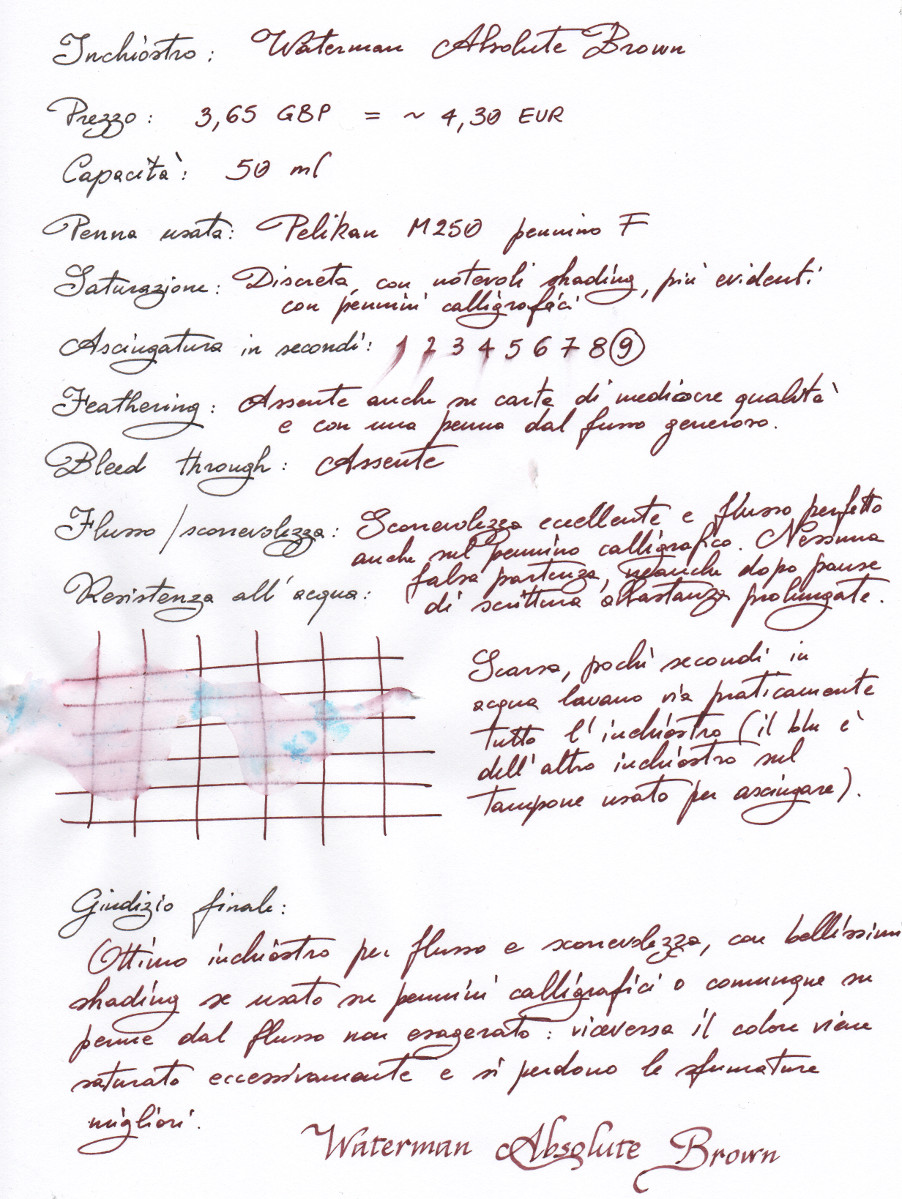 Inchiostro: Waterman Absolute Brown
Prezzo: 3,65 GBP = ~ 4,30 EUR
Capacità: 50 ml
Penna usata: Pelikan M250 pennino F
Saturazione: Discreta, con notevoli shading, più evidenti
con pennini calligrafici
Asciugatura in secondi: 1 2 3 4 5 6 7 8 9
Feathering: Assente anche su carta di mediocre qualità
e con una penna dal flusso generoso.
Bleed through: Assente
Flusso/scorrevolezza: Scorrevolezza eccellente e flusso perfetto
anche sul pennino calligrafico. Nessuna
falsa partenza, neanche dopo pause
di scrittura abbastanza prolungate.
Resistenza all'acqua:
Scarsa, pochi secondi in
acqua lavano via praticamente
tutto l'inchiostro (il blu è
dell'altro inchiostro sul
tampone usato per asciugare).
Giudizio finale:
Ottimo inchiostro per flusso e scorrevolezza, con bellissimi
shading se usato su pennini calligrafici o comunque su
penne dal flusso non esagerato: viceversa il colore viene
saturato eccessivamente e si perdono le sfumature
migliori.
Waterman Absolute Brown